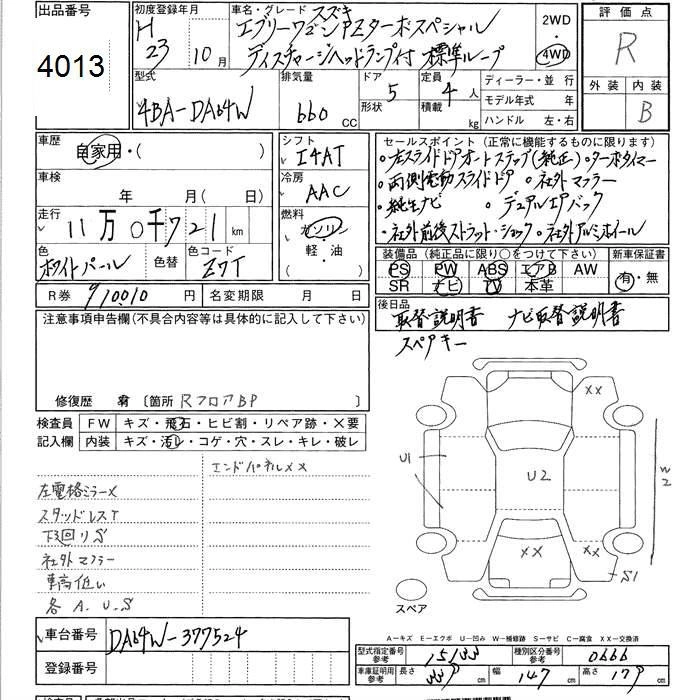 出品番号
4013
初度登録年月
H 23 10月
車名・グレード スズキ
エブリーワゴンPZターボスペシャル
ディスチャージヘッドランプ付 標準ルーフ
2WD
・
4WD
評価点
R
外装 内装
B
型式
4BA-DA64W
排気量
660 CC
ドア 形状 5
定員 4人
積載 kg
ディーラー・並行
モデル年式 年
ハンドル 左・右
車歴
自家用・( )
車検
年 月( 日)
走行
11万0千721 km
色
ホワイトパール
色替
色コード
Z7T
シフト
I4AT
冷房
AAC
燃料
ガソリン
・
軽・油
セールスポイント(正常に機能するものに限ります)
・左スライドドアオートステップ(純正)・ターボタイマー
・両側電動スライドドア ・社外マフラー
・純正ナビ ・デュアルエアバック
・社外前後ストラット・ショック・社外アルミホイール
装備品(純正品に限り○をつけて下さい) 新車保証書
PS PW ABS エアB AW
SR ナビ TV 本革
有・無
R券 910010 円 名変期限 月 日
後日品 取替説明書 ナビ取替説明書
スペアキー
注意事項申告欄(不具合内容等は具体的に記入して下さい)
修復歴 有 〔箇所 RフロアBP 〕
検査員
記入欄
FW キズ・飛石・ヒビ割・リペア跡・×要
内装 キズ・汚レ・コゲ・穴・スレ・キレ・破レ
エンドパネルXX
左電格ミラーX
スタッドレスT
下3回りS
社外マフラー
車高低い
各A.U.S
XX
U1
U2
XX
S1
W2
スペア
A-キズ E-エクボ U-凹み W-補修跡 S-サビ C-腐食 XX-交換済
車台番号 DA64W-377524
登録番号
型式指定番号 参考 15133
種別区分番号 参考 0666
車庫証明用 参考 長さ 339 cm 幅 147 cm 高さ 179 cm